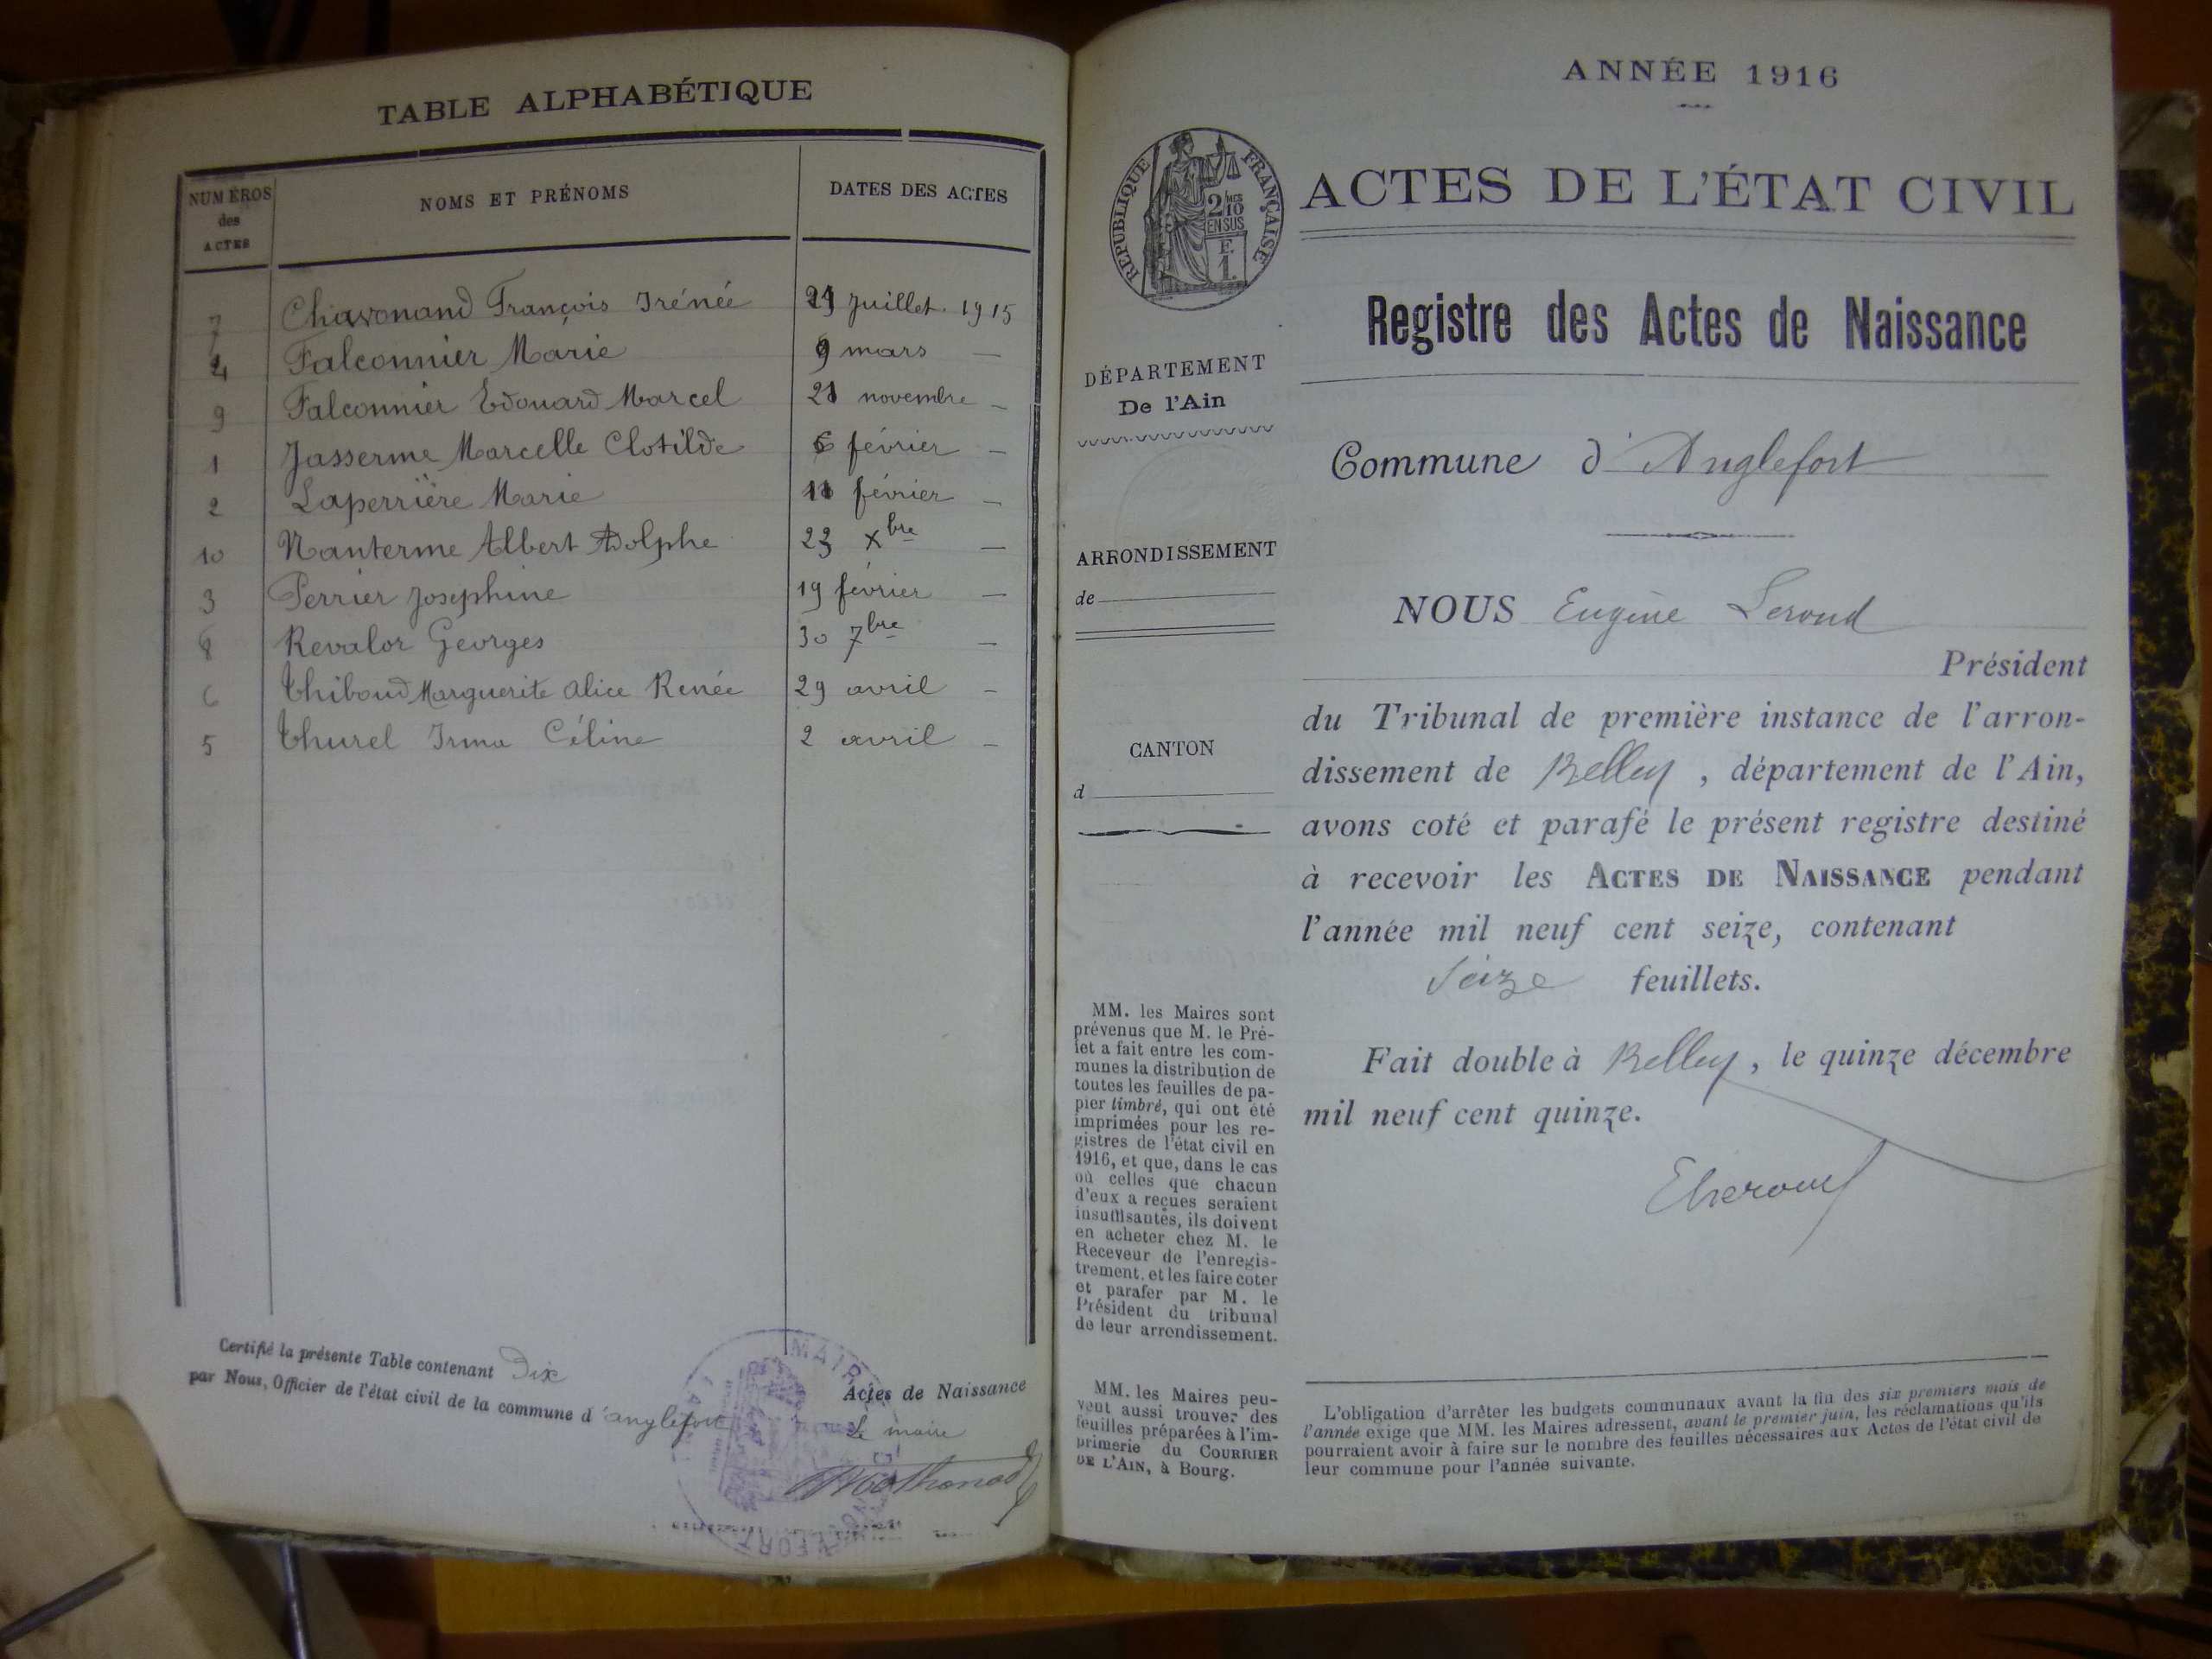 TABLE ALPHABÉTIQUE
NUMÉROS des ACTES
NOMS ET PRÉNOMS
DATES DES ACTES
7 Chavonand François Irénée juillet. 1915
4 Falconnier Marie 9 mars —
9 Falconnier Edouard Marcel 21 novembre —
1 Jasserme Marcelle Clotilde 6 février —
2 Laperrière Marie février —
10 Nanterme Albert Adolphe 23 Xbre —
3 Perrier Joséphine 19 février —
8 Revalor Georges 30 7bre —
6 Thiboud Marguerite Alice Renée 29 avril —
5 Thurel Irma Céline 2 avril —
Certifié la présente Table contenant Dix Actes de Naissance
par Nous, Officier de l'état civil de la commune d'anglefort
Le maire
ANNÉE 1916
RÉPUBLIQUE FRANÇAISE
2/10 MES
EN SUS
E.
1.
ACTES DE L'ÉTAT CIVIL
DÉPARTEMENT
De l'Ain
ARRONDISSEMENT
de
CANTON
d
MM. les Maires sont
prévenus que M. le Pré-
fet a fait entre les com-
munes la distribution de
toutes les feuilles de pa-
pier timbré, qui ont été
imprimées pour les re-
gistres de l'état civil en
1916, et que, dans le cas
où celles que chacun
d'eux a reçues seraient
insuffisantes, ils doivent
en acheter chez M. le
Receveur de l'enregis-
trement, et les faire coter
et parafer par M. le
Président du tribunal
de leur arrondissement.
MM. les Maires peu-
vent aussi trouver des
feuilles préparées à l'im-
primerie du COURRIER
DE L'AIN, à Bourg.
Registre des Actes de Naissance
Commune d'Anglefort
NOUS Eugène Leroud
Président
du Tribunal de première instance de l'arron-
dissement de Belley, département de l'Ain,
avons coté et parafé le présent registre destiné
à recevoir les ACTES DE NAISSANCE pendant
l'année mil neuf cent seize, contenant
Seize feuillets.
Fait double à Belley, le quinze décembre
mil neuf cent quinze.
L'obligation d'arrêter les budgets communaux avant la fin des six premiers mois de
l'année exige que MM. les Maires adressent, avant le premier juin, les réclamations qu'ils
pourraient avoir à faire sur le nombre des feuilles nécessaires aux Actes de l'état civil de
leur commune pour l'année suivante.